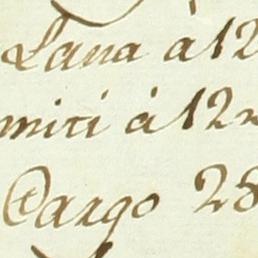 Lana à 12
miti à 12
Cargo 28